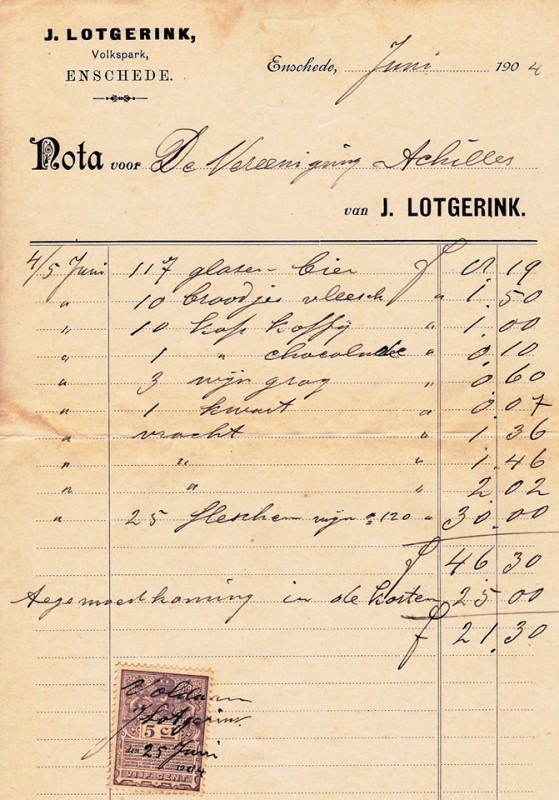 J. LOTGERINK,
Volkspark,
ENSCHEDE.
Enschede, Juni 1904
Nota voor De Vereeniging Achilles
van J. LOTGERINK.
4/5 Juni 117 glasen bier f 8 19
" 10 broodjes vleesch " 1.50
" 10 kop koffij " 1.00
" 1 " chocolade " 0.10
" 3 wijn grog " 0.60
" 1 kwast " 0.07
" vracht " 1.36
" " " 1.46
" " " 2.02
" 25 flesschen wijn a 120 " 30.00
f 46 30
tegemoedkoming in de kosten 25 00
f 21.30
Voldaan
J Lotgerink
5 Ct
den 25 Juni
1904
VIJF CENT